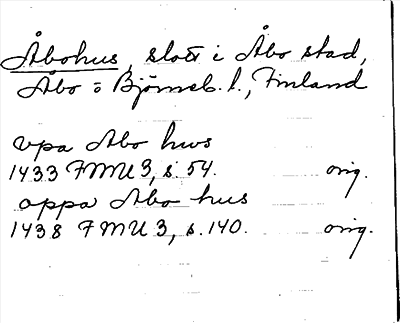 Åbohus, slott i Åbo stad,
Åbo o Björneb. l., Finland
vpa Åbo hws
1433 FMU 3, s. 54. orig.
oppa Åbo hus
1438 FMU 3, s. 140. orig.